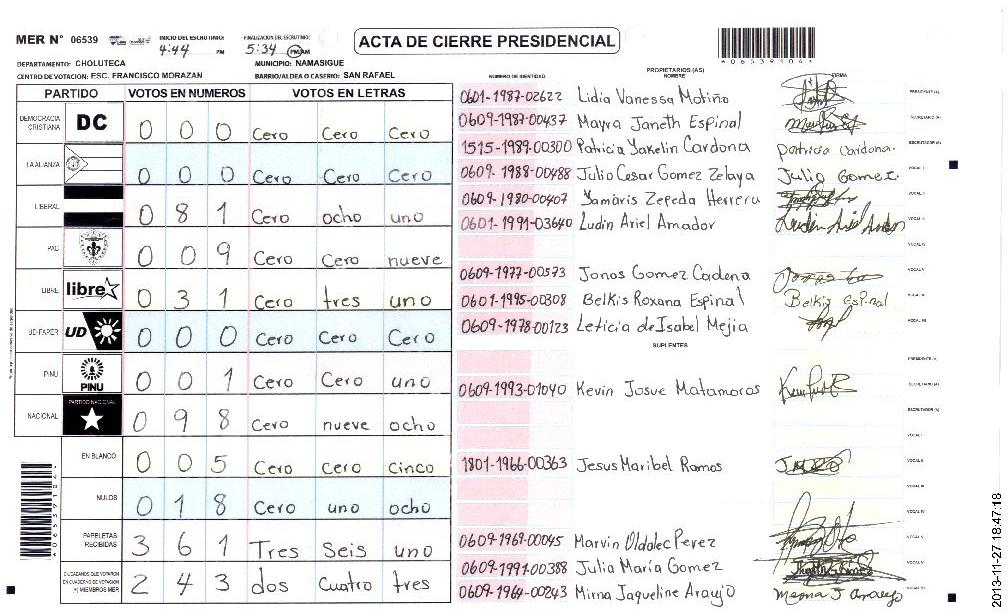 MER N° 06539 INICIO DEL ESCRUTINIO: 4:44 PM FINALIZACION DEL ESCRUTINIO: 5:34 PM AM
ACTA DE CIERRE PRESIDENCIAL
406539104
DEPARTAMENTO: CHOLUTECA MUNICIPIO: NAMASIGUE
CENTRO DE VOTACION: ESC. FRANCISCO MORAZAN BARRIO/ALDEA O CASERIO: SAN RAFAEL
PARTIDO VOTOS EN NUMEROS VOTOS EN LETRAS
DEMOCRACIA CRISTIANA DC 0 0 0 Cero Cero Cero
LA ALIANZA 0 0 0 Cero Cero Cero
LIBERAL 0 8 1 Cero ocho uno
PAC 0 0 9 Cero Cero nueve
LIBRE libre 0 3 1 Cero tres uno
UD-FAPER UD 0 0 0 Cero Cero Cero
PINU PINU 0 0 1 Cero Cero uno
NACIONAL PARTIDO NACIONAL 0 9 8 Cero nueve ocho
EN BLANCO 0 0 5 Cero Cero Cinco
NULOS 0 1 8 Cero uno ocho
PAPELETAS RECIBIDAS 3 6 1 Tres Seis uno
CIUDADANOS QUE VOTARON EN CUADERNO DE VOTACION (+) MIEMBROS MER 2 4 3 dos Cuatro tres
NUMERO DE IDENTIDAD PROPIETARIOS (AS) NOMBRE FIRMA
0601-1987-02622 Lidia Vanessa Motiño PRESIDENTE (A)
0609-1987-00437 Mayra Janeth Espinal SECRETARIO (A)
1515-1989-00300 Patricia Yakelin Cardona patricia Cardona. ESCRUTADOR (A)
0609-1988-00488 Julio Cesar Gomez Zelaya Julio Gomez. VOCAL I
0609-1980-00407 Yamaris Zepeda Herrera VOCAL II
0601-1991-03640 Ludin Ariel Amador VOCAL III
VOCAL IV
0609-1977-00573 Jonos Gomez Cadena VOCAL V
0601-1995-00308 Belkis Roxana Espinal Belkis Espinal
0609-1978-00123 Leticia de Isabel Mejia
SUPLENTES
PRESIDENTE (A)
0609-1993-01040 Kevin Josue Matamoros SECRETARIO (A)
ESCRUTADOR (A)
VOCAL I
1801-1966-00363 Jesus Maribel Ramos VOCAL II
VOCAL III
VOCAL IV
0609-1969-00045 Marvin Oldalec Perez VOCAL V
0609-1991-00388 Julia María Gomez
0609-1964-00243 Mirna Jaqueline Araujo Mirna J Araujo
2013-11-27 18:47:18